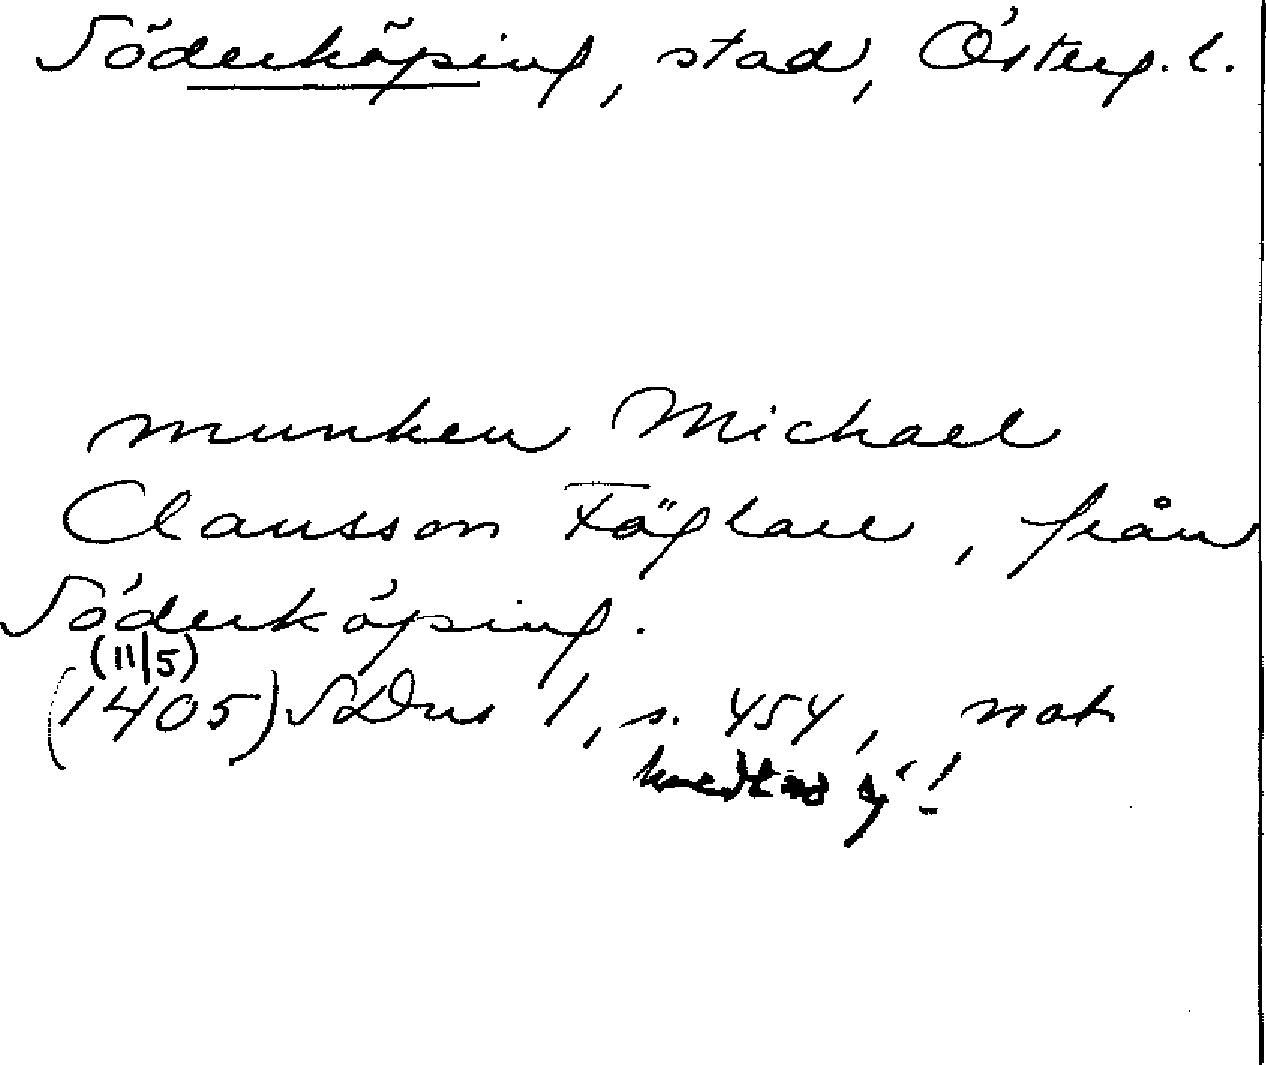 Söderköping, stad, Österg.l.
munken Michael
Clausson Fåglare, från
Söderköping.
(11/5)
(1405) SDns 1, s. 454, not
ej!